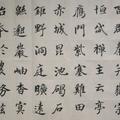 恒岱禪主云亭
雁門紫塞雞田
赤城昆池碣石
鉅野洞庭曠遠
綿邈巖岫杳冥